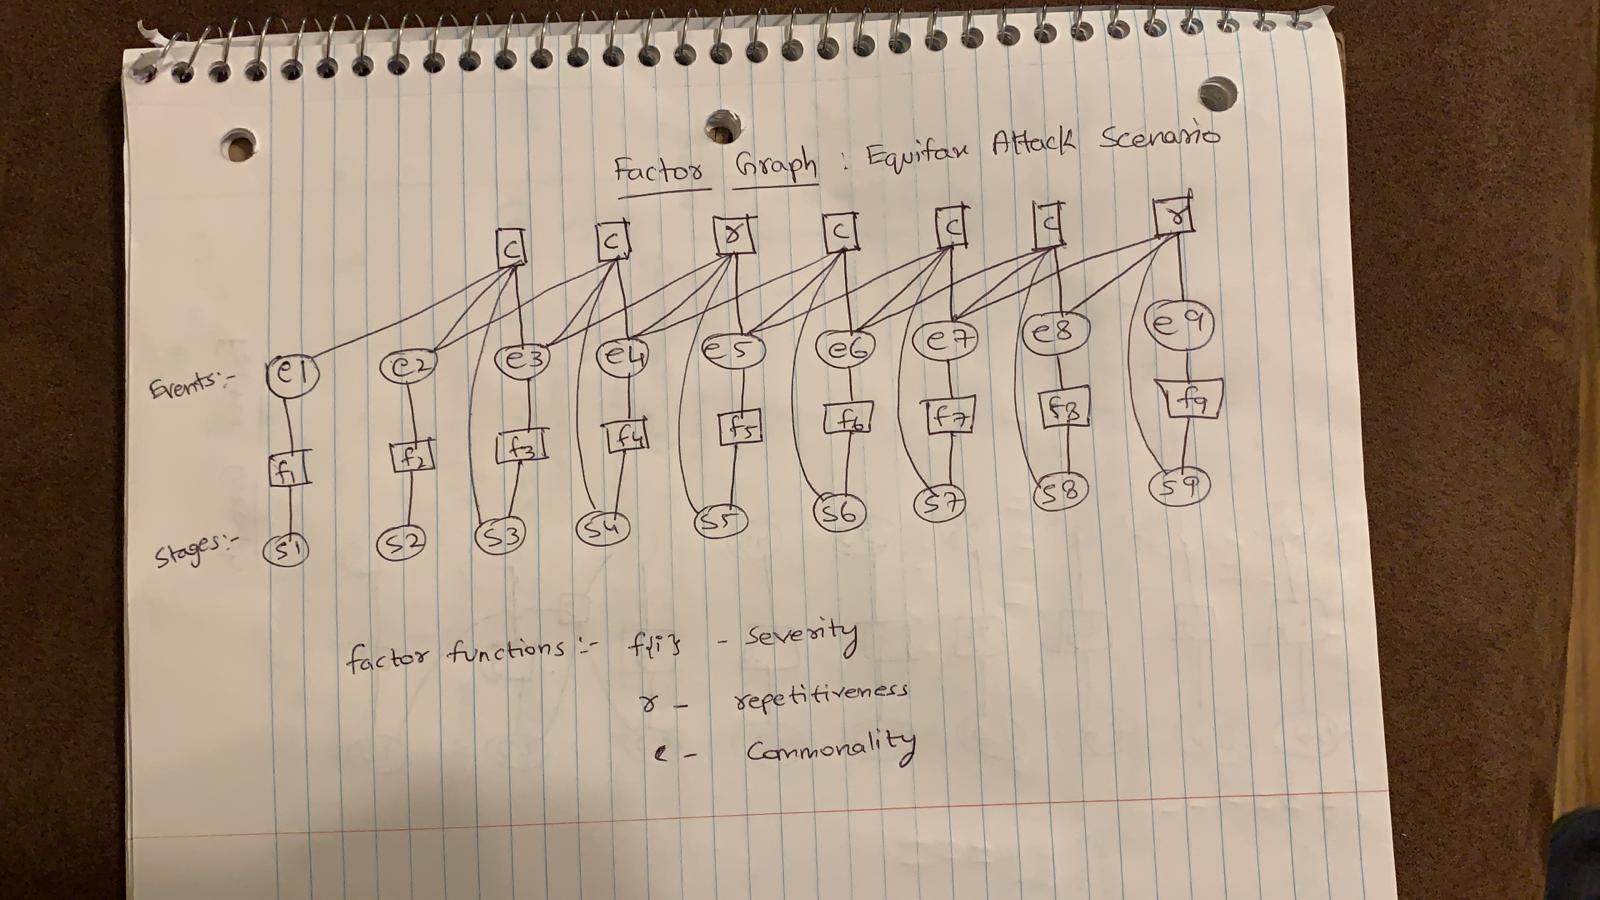 Factor Graph : Equifax Attack Scenario
c c r c c c r
Events:- e1 e2 e3 e4 e5 e6 e7 e8 e9
f1 f2 f3 f4 f5 f6 f7 f8 f9
Stages:- S1 S2 S3 S4 S5 S6 S7 S8 S9
factor functions :- f{i} - Severity
r - repetitiveness
c - Commonality